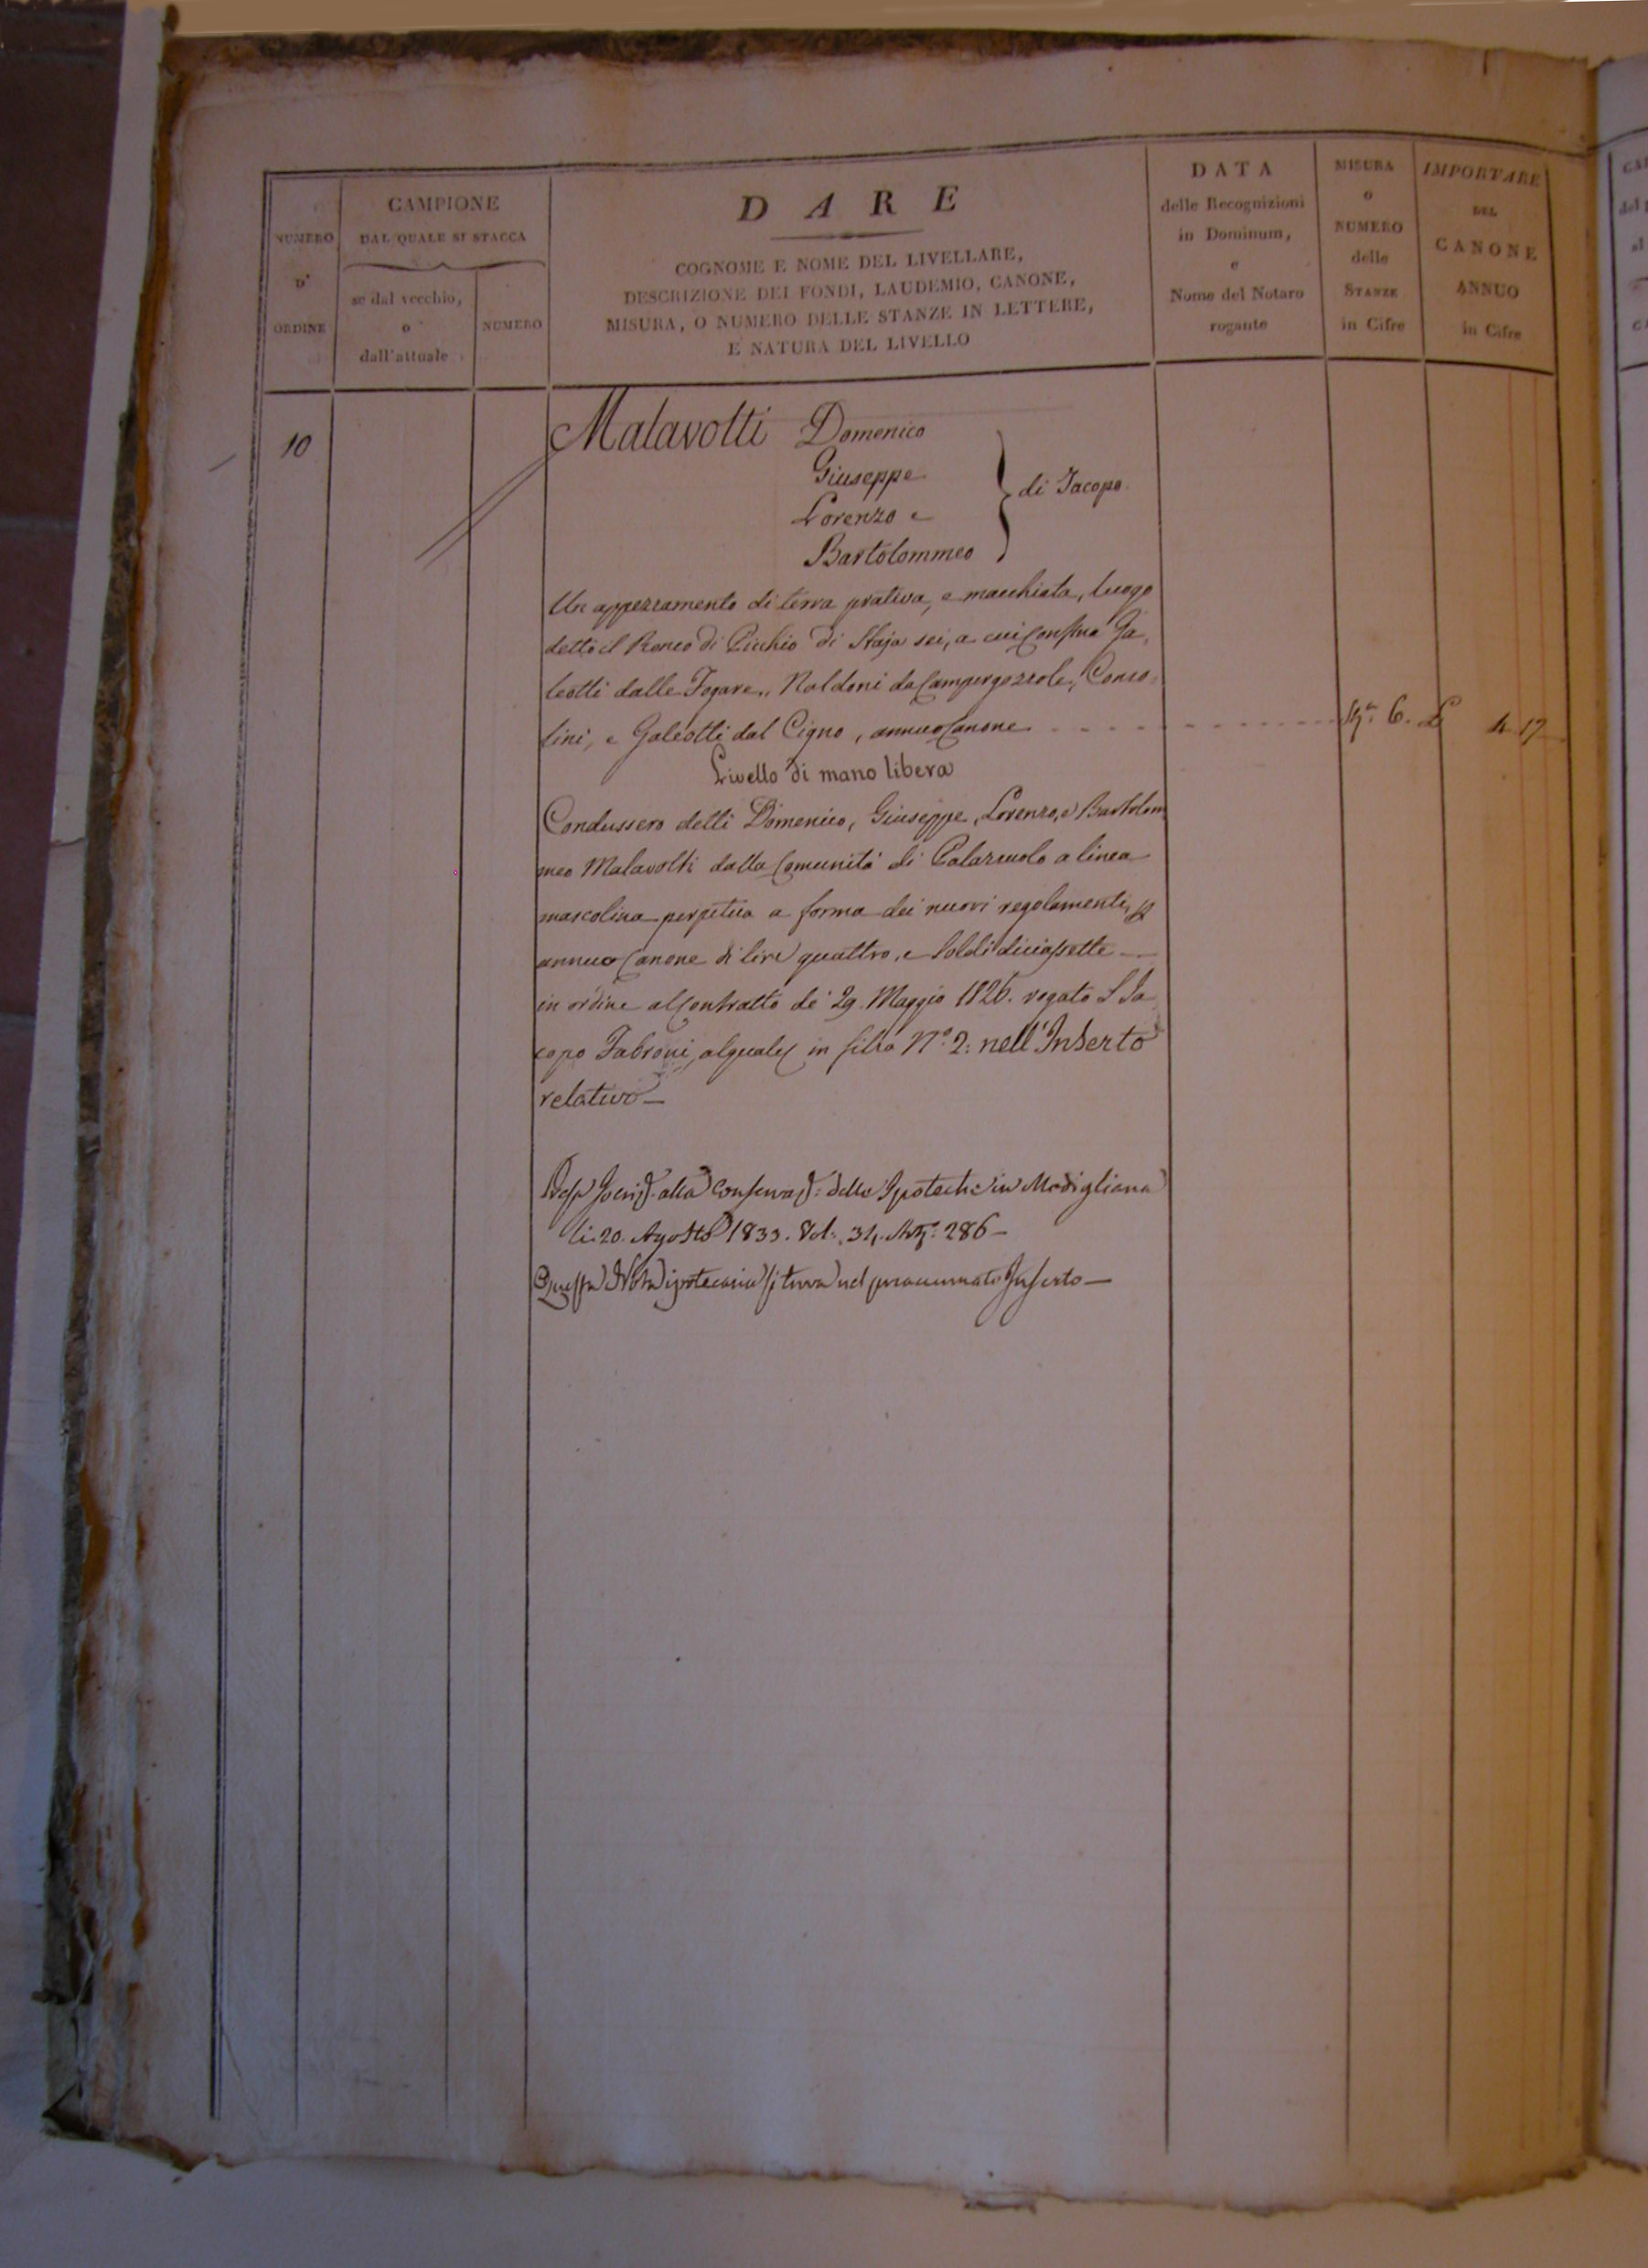 NUMERO
D'
ORDINE
CAMPIONE
DAL QUALE SI STACCA
se dal vecchio,
o
dall'attuale
NUMERO
DARE
COGNOME E NOME DEL LIVELLARE,
DESCRIZIONE DEI FONDI, LAUDEMIO, CANONE,
MISURA, O NUMERO DELLE STANZE IN LETTERE,
E NATURA DEL LIVELLO
DATA
delle Recognizioni
in Dominum,
e
Nome del Notaro
rogante
MISURA
o
NUMERO
delle
STANZE
in Cifre
IMPORTARE
DEL
CANONE
ANNUO
in Cifre
10
Malavolti Domenico
Giuseppe
Lorenzo e
Bartolommeo
di Jacopo
Un appezzamento di terra prativa, e macchiata, luogo
detto il Ronco di Picchio di Staja sei, a cui Confina Ga,
leotti dalle Fogare, Naldoni da Campergozzole, Conso=
lini, e Galeotti dal Cigno, annuo Canone
6. L 4 17
Livello di mano libera
Condussero detti Domenico, Giuseppe, Lorenzo, e Bartolom
meo Malavolti dalla Comunità di Palazuolo a linea
mascolina perpetua a forma dei nuovi regolamenti,
annuo Canone di lire quattro, e Soldi diciassette
in ordine al Contratto de' 29. Maggio 1826. rogato S Ja
copo Fabroni, in filza N.º 2: nell'Inserto
relativo
alla delle Ipoteche in Modigliana
li 20. Agosto 1833. Vol: 34. 286
Questa Nota ipotecaria si trova nel Inserto